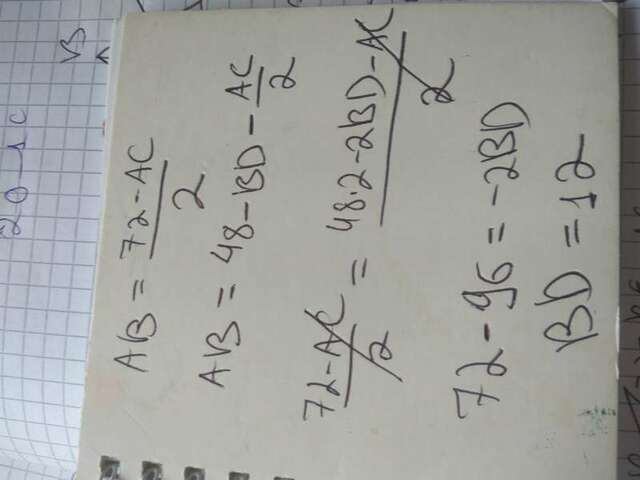 AB = 72 - AC / 2
AB = 48 - BD - AC / 2
72 - AC / 2 = 48·2 - 2BD - AC / 2
72 - 96 = -2BD
BD = 12